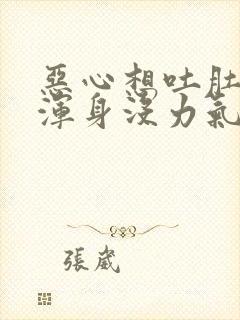 惡心想吐肚
渾身沒力氣
張崴